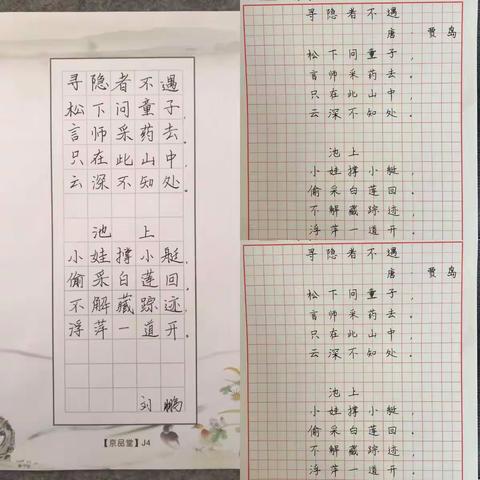 寻隐者不遇
松下问童子,
言师采药去.
只在此山中,
云深不知处.
池上
小娃撑小艇,
偷采白莲回.
不解藏踪迹,
浮萍一道开.
刘鹏
【京品堂】J4
寻隐者不遇
唐 贾岛
松下问童子,
言师采药去.
只在此山中,
云深不知处.
池上
小娃撑小艇,
偷采白莲回.
不解藏踪迹,
浮萍一道开.
寻隐者不遇
唐 贾岛
松下问童子,
言师采药去.
只在此山中,
云深不知处.
池上
小娃撑小艇,
偷采白莲回.
不解藏踪迹,
浮萍一道开.